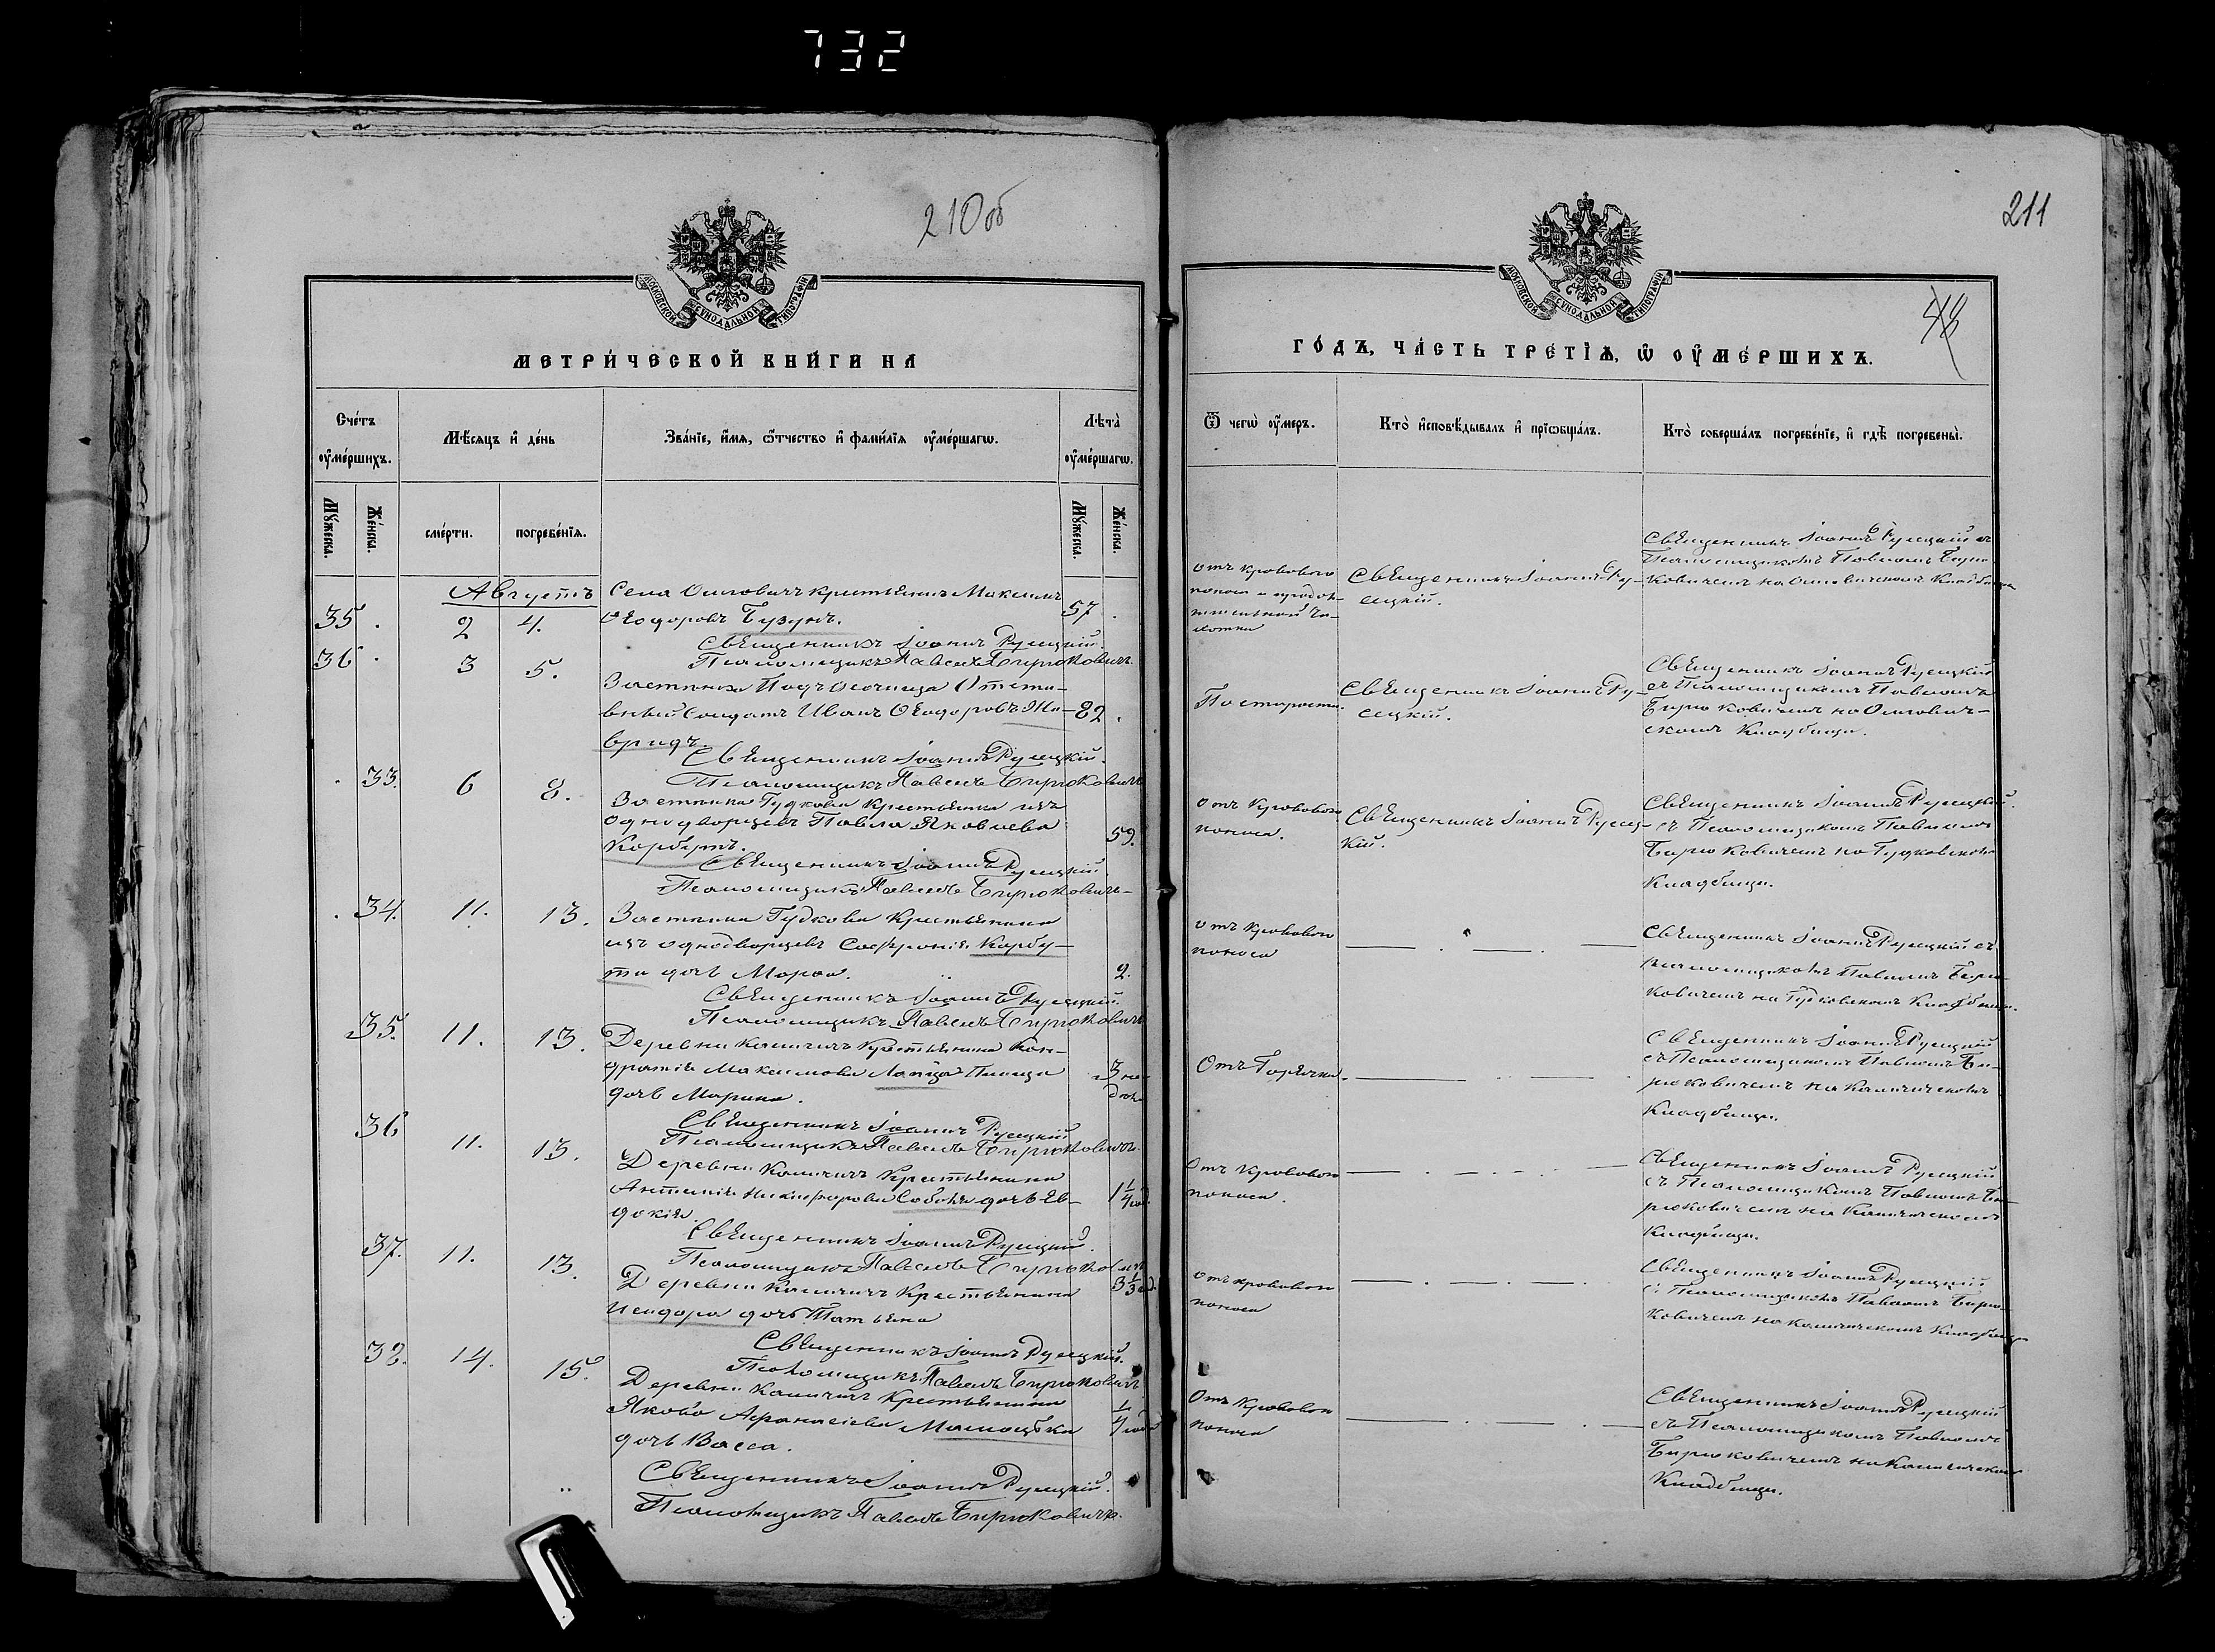 732
210об
МОСКОВСКОЙ СУНОДАЛЬНОЙ ТИПОГРАФІИ
МЕТРИ́ЧЕСКОЙ КНИ́ГИ НА
Сче́тъ оу҆ме́ршихъ.
Мѣ́сяцъ и҆ де́нь
Зва́нїе, и҆́мѧ, ѻ҆́тчество и҆ фами́лїѧ оу҆ме́ршагѡ.
Лѣ́та оу҆ме́ршагѡ.
Мꙋ́жеска.
Же́нска.
сме́рти.
погребе́нїѧ.
Мꙋ́жеска.
Же́нска.
Августъ
35. 2 4.
Села Осовичъ крестьянинъ Максимъ
Ѳеодоровъ Бузунъ. 57
Священникъ Іоаннъ Русецкій.
Псаломщикъ Павелъ Бирюковичъ.
36 3 5.
Застѣнка
Отста-
вный Солдатъ Иванъ Ѳеодоровъ 82
Священникъ Іоаннъ Русецкій.
Псаломщикъ Павелъ Бирюковичъ
33. 6 8.
Застѣнка Гудкова Крестьянка изъ
однодворцевъ Павла Яковлева
Корбутъ. 59.
Священникъ Іоаннъ Русецкій.
Псаломщикъ Павелъ Бирюковичъ
34. 11. 13.
Застѣнка Гудкова Крестьянина
изъ однодворцевъ Софронія Карбу-
та дочь Марѳа. 2.
Священникъ Іоаннъ Русецкій.
Псаломщикъ Павелъ Бирюковичъ
35. 11. 13.
Деревни Камичъ Крестьянина Кон-
дратія Максимова
дочь Марина. 3
Священникъ Іоаннъ Русецкій
Псаломщикъ Павелъ Бирюковичъ
36 11. 13.
Деревни Камичъ Крестьянина
Антонія Никифорова дочь Ев-
докія. 1 1/4 год
Священникъ Іоаннъ Русецкій.
Псаломщикъ Павелъ Бирюковичъ
37. 11. 13.
Деревни Камичъ Крестьянина 3 1/3
Исидора дочь Татьяна
Священникъ Іоаннъ Русецкій.
Псаломщикъ Павелъ Бирюковичъ
38. 14. 15.
Деревни Камичъ Крестьянина
Якова Аѳанасіева 1/4 года
дочь Васса.
Священникъ Іоаннъ Русецкій.
Псаломщикъ Павелъ Бирюковичъ.
211
МОСКОВСКОЙ СУНОДАЛЬНОЙ ТИПОГРАФІИ
ГО́ДЪ, ЧА́СТЬ ТРЕ́ТЇѦ, Ѡ҆ ОУ҆МЕ́РШИХЪ.
Ѿ чегѡ̀ оу҆́меръ.
Кто̀ и҆сповѣ́дывалъ и҆ прїѡбща́лъ.
Кто̀ соверша́лъ погребе́нїе, и҆ гдѣ̀ погребены̀.
Отъ кроваваго
поноса и продол-
жительной ча-
хотки
Священникъ Іоаннъ Ру-
сецкій.
Священникъ Іоаннъ Русецкій съ
Псаломщикомъ Павломъ Бирю-
ковичемъ на Осовичскомъ Кладбищѣ
По старости.
Священникъ Іоаннъ Ру-
сецкій.
Священникъ Іоаннъ Русецкій
съ Псаломщикомъ Павломъ
Бирюковичемъ на Осович-
скомъ Кладбищѣ.
Отъ Кроваваго
поноса.
Священникъ Іоаннъ Русец-
кій.
Священникъ Іоаннъ Русецкій.
съ Псаломщикомъ Павломъ
Бирюковичемъ на Гудковскомъ
Кладбищѣ.
отъ Кроваваго
поноса
Священникъ Іоаннъ Русецкій съ
псаломщикомъ Павломъ Бирю-
ковичемъ на Гудковскомъ Кладбищѣ.
Отъ Горячки.
Священникъ Іоаннъ Русецкій
съ Псаломщикомъ Павломъ Би-
рюковичемъ на Камичскомъ
Кладбищѣ.
Отъ Кроваваго
поноса.
Священникъ Іоаннъ Русецкій
съ Псаломщикомъ Павломъ Би-
рюковичемъ на Камичскомъ
Кладбищѣ.
отъ кроваваго
поноса
Священникъ Іоаннъ Русецкій
съ Псаломщикомъ Павломъ Бирю-
ковичемъ на Камичскомъ Кладбищѣ
Отъ Кроваваго
поноса
Священникъ Іоаннъ Русецкій
съ Псаломщикомъ Павломъ
Бирюковичемъ на Камичскомъ
Кладбищѣ.